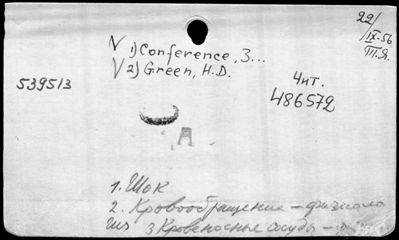 22/
IX-56
П.Я.
V 1) Conference, 3...
V 2) Green, H.D.
539513
Чит.
486572
А
1. Шок
2. Кровообращение - физиоло
гия 3 Кровеносные сосуды -